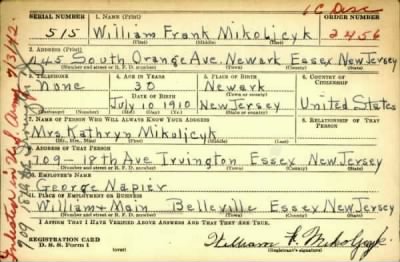 1C Disc
SERIAL NUMBER 1. NAME (Print) ORDER NUMBER
515 William Frank Mikoljcyk 2456
(First) (Middle) (Last)
2. ADDRESS (Print)
145 South Orange Ave. Newark Essex New Jersey
(Number and street or R. F. D. number) (Town) (County) (State)
3. TELEPHONE 4. AGE IN YEARS 5. PLACE OF BIRTH 6. COUNTRY OF CITIZENSHIP
None 30 Newark
DATE OF BIRTH (Town or county)
July 10 1910 New Jersey United States
(Exchange) (Number) (Mo.) (Day) (Yr.) (State or country)
7. NAME OF PERSON WHO WILL ALWAYS KNOW YOUR ADDRESS 8. RELATIONSHIP OF THAT PERSON
Mrs. Kathryn Mikoljcyk
(Mr., Mrs., Miss) (First) (Middle) (Last)
9. ADDRESS OF THAT PERSON
709-18th Ave Irvington Essex New Jersey
(Number and street or R. F. D. number) (Town) (County) (State)
10. EMPLOYER'S NAME
George Napier
11. PLACE OF EMPLOYMENT OR BUSINESS
William & Main Belleville Essex New Jersey
(Number and street or R. F. D. number) (Town) (County) (State)
I AFFIRM THAT I HAVE VERIFIED ABOVE ANSWERS AND THAT THEY ARE TRUE.
REGISTRATION CARD
D. S. S. Form 1 (over) William F. Mikoljcyk
(Registrant's signature)
Inducted in U.S. Army 7/3/42
709 18th Ave Irvington N.J.